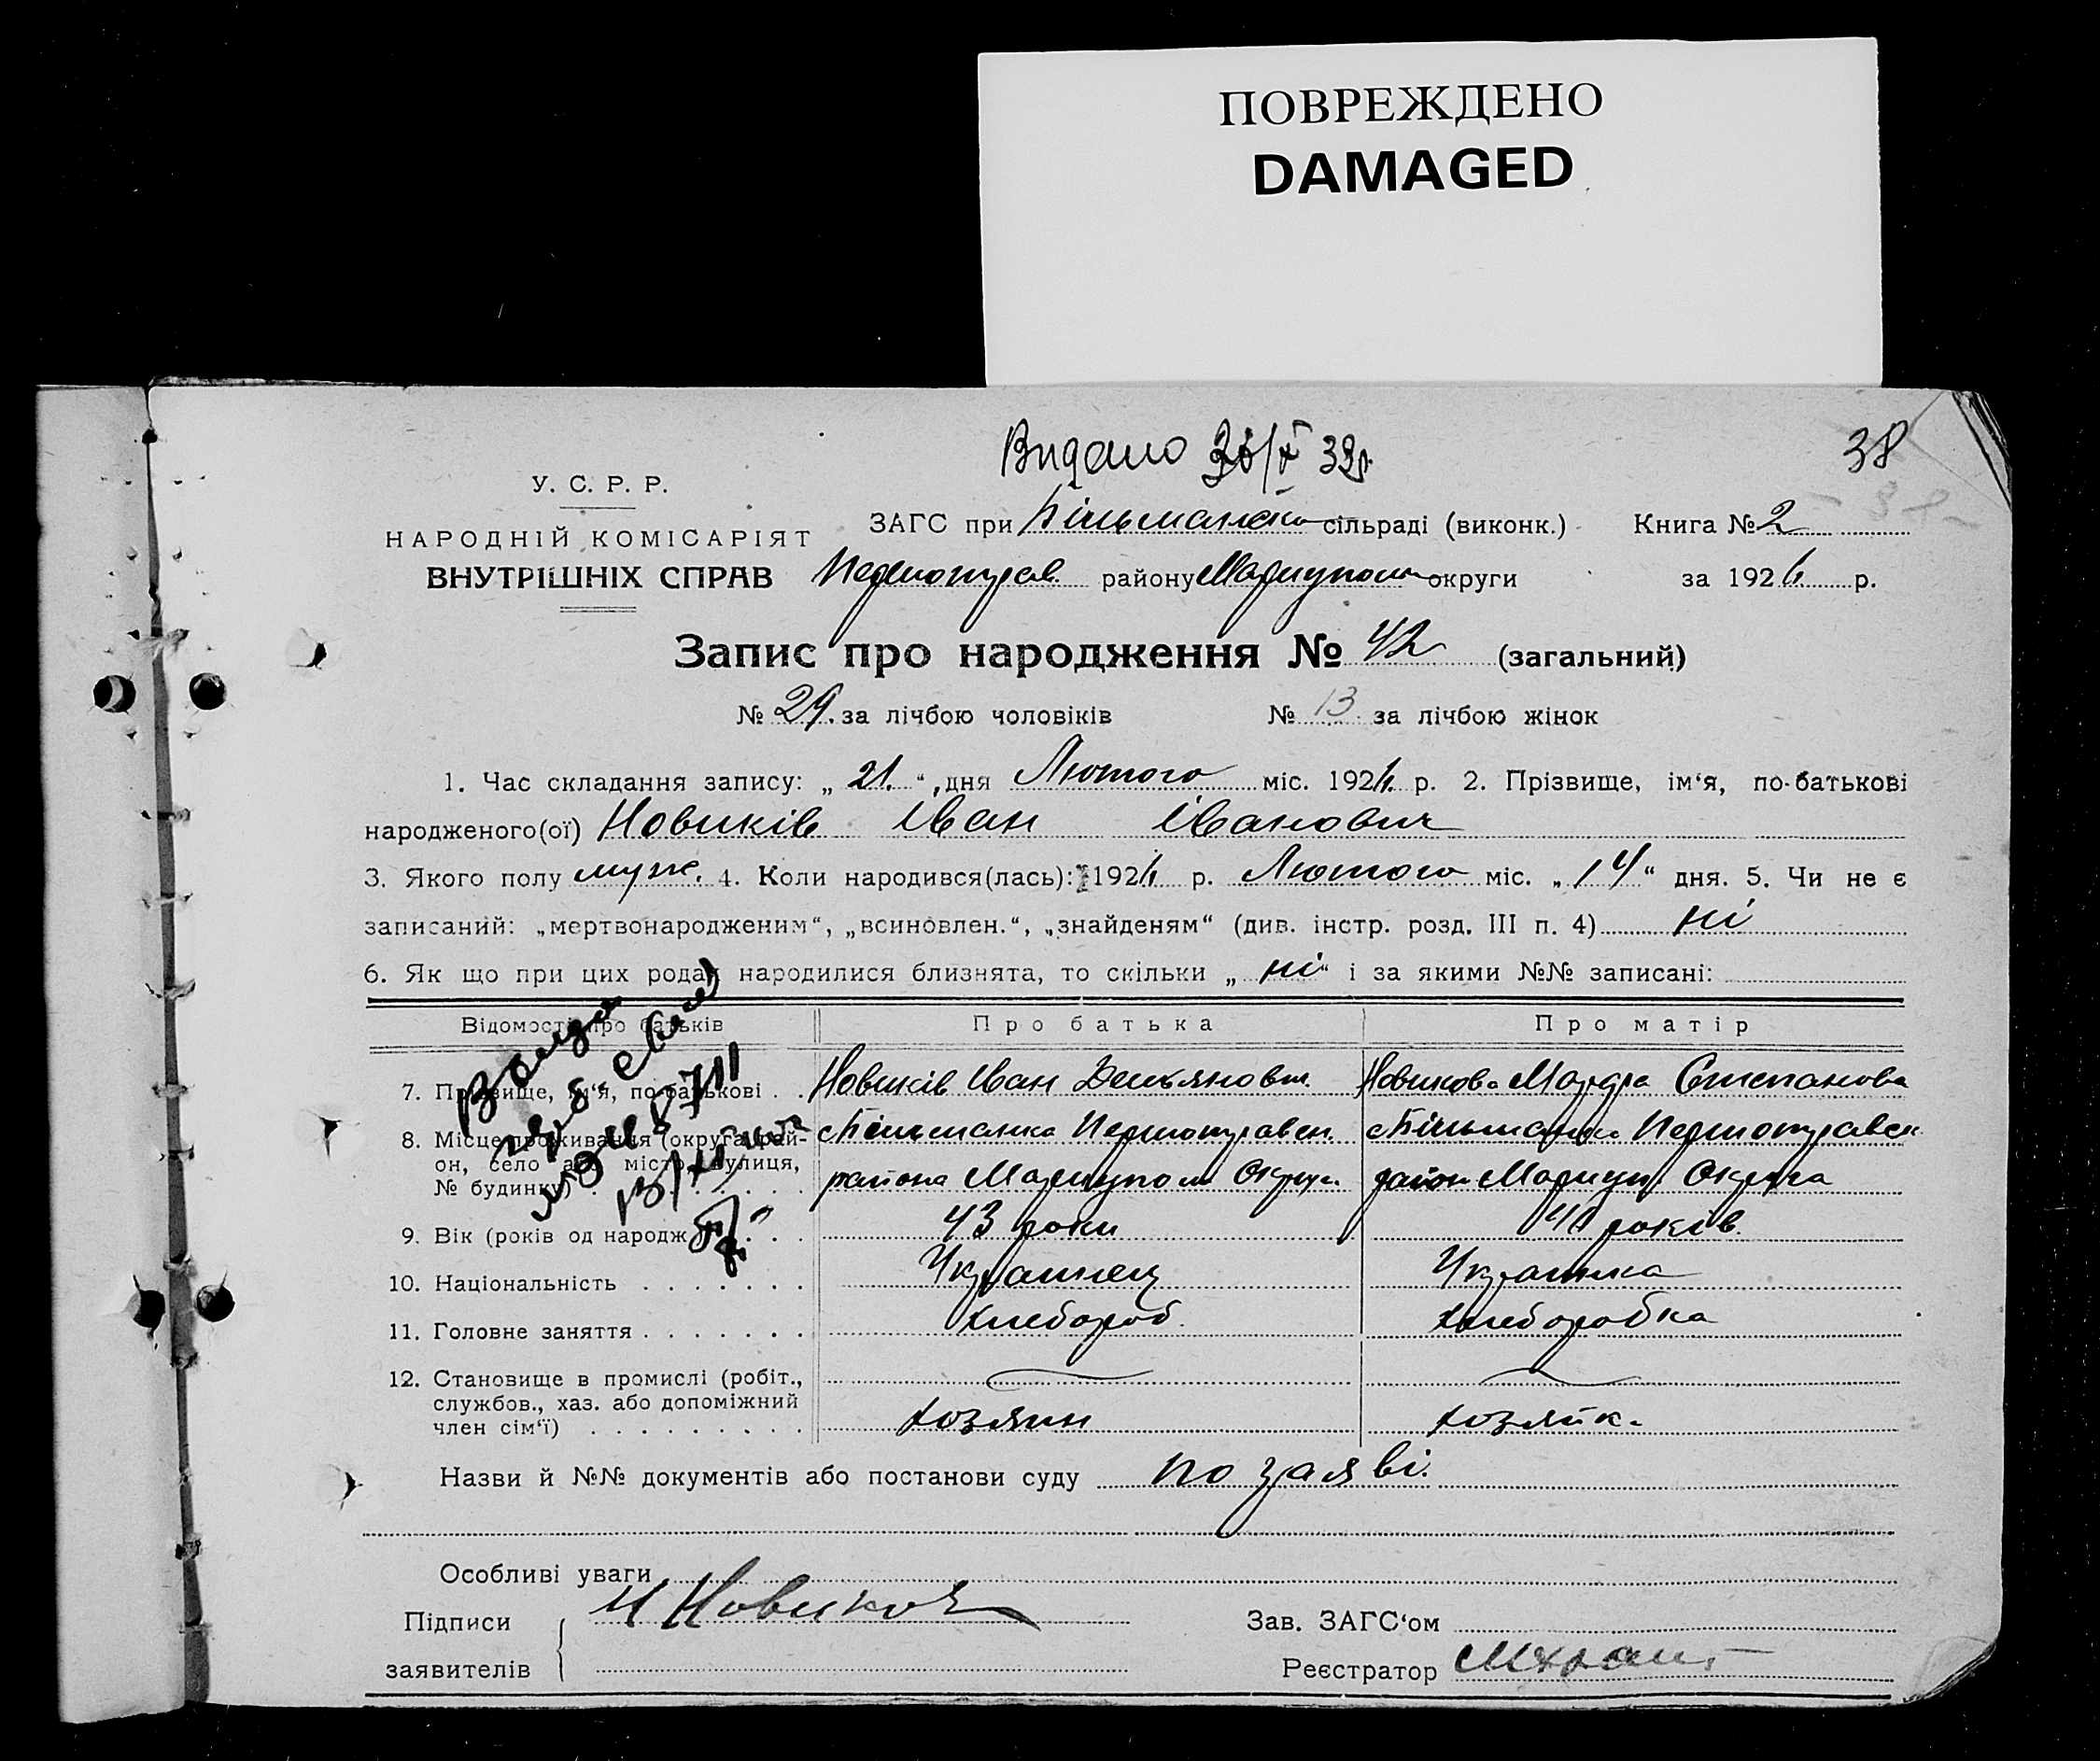 ПОВРЕЖДЕНО
DAMAGED
Видано 32р.
38
У. С. Р. Р.
НАРОДНІЙ КОМІСАРІЯТ
ВНУТРІШНІХ СПРАВ
ЗАГС при Більманско сільраді (виконк.) Книга № 2
Першотрав. району Маріупол округи за 1926 р.
Запис про народження № 42 (загальний)
№ 29. за лічбою чоловіків № 13 за лічбою жінок
1. Час складання запису: „ 21. “ дня Лютого міс. 1926. р. 2. Прізвище, ім‘я, по-батькові
народженого(ої) Новиків Іван Іванович
3. Якого полу муж. 4. Коли народився(лась): 1926 р. Лютого міс. „ 14 “ дня. 5. Чи не є
записаний: „мертвонародженим“, „всиновлен.“, „знайденям“ (див. інстр. розд. III п. 4) ні
6. Як що при цих родах народилися близнята, то скільки „ ні “ і за якими №№ записані:
Відомості про батьків Про батька Про матір
7. Прізвище, ім‘я, по-батькові . . Новиків Іван Демьянович. Новикова Степанова
8. Місце проживання (округа, рай- Більманка Першотравен. Більманка Першотравен
он, село або місто, вулиця, района Маріупол Округи. район Маріуп. Округа
№ будинку) . . . . . . .
9. Вік (років од народж . . . 43 роки 41 років.
10. Національність . . . . . . . Українец Українка
11. Головне заняття . . . . . . . хлебороб. хлеборобка
12. Становище в промислі (робіт.,
службов., хаз. або допоміжний хозяин хозяйка
член сім‘ї) . . . . . . . . .
Назви й №№ документів або постанови суду по заяві.
Особливі уваги
Підписи И Новиков Зав. ЗАГС‘ом
заявителів Реєстратор